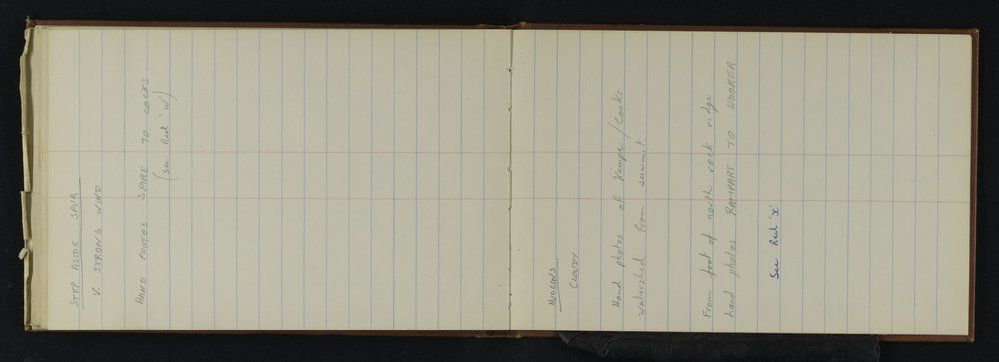 STEP ASIDE SPUR
V. STRONG WIND
HAND PHOTOS SPIRE TO COCKS
(see Red 'W')
HUGGINS
CLOUDY
Hand photos of Kempe/Cocks
Watershed from summit
From foot of north rock ridge
hand photos RAMPART TO HOOKER
See Red 'X'